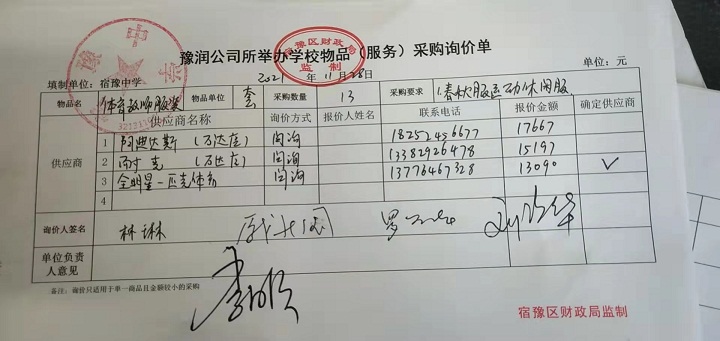 豫润公司所举办学校物品（服务）采购询价单
宿豫区财政局
监制
填制单位：宿豫中学 2021年11月28日 单位：元
物品名 体育教师服装 物品单位 套 采购数量 13 采购要求 1.春秋服运动休闲服
供应商 供应商名称 询价方式 报价人姓名 联系电话 报价金额 确定供应商
1 阿迪达斯（万达店） 18252456677 17667
2 耐克（万达店） 13382926478 15197
3 全明星－匹克体育 13776467328 13090 ✓
4
询价人签名 林琳
单位负责人意见
备注：询价只适用于单一商品且金额较小的采购
宿豫区财政局监制